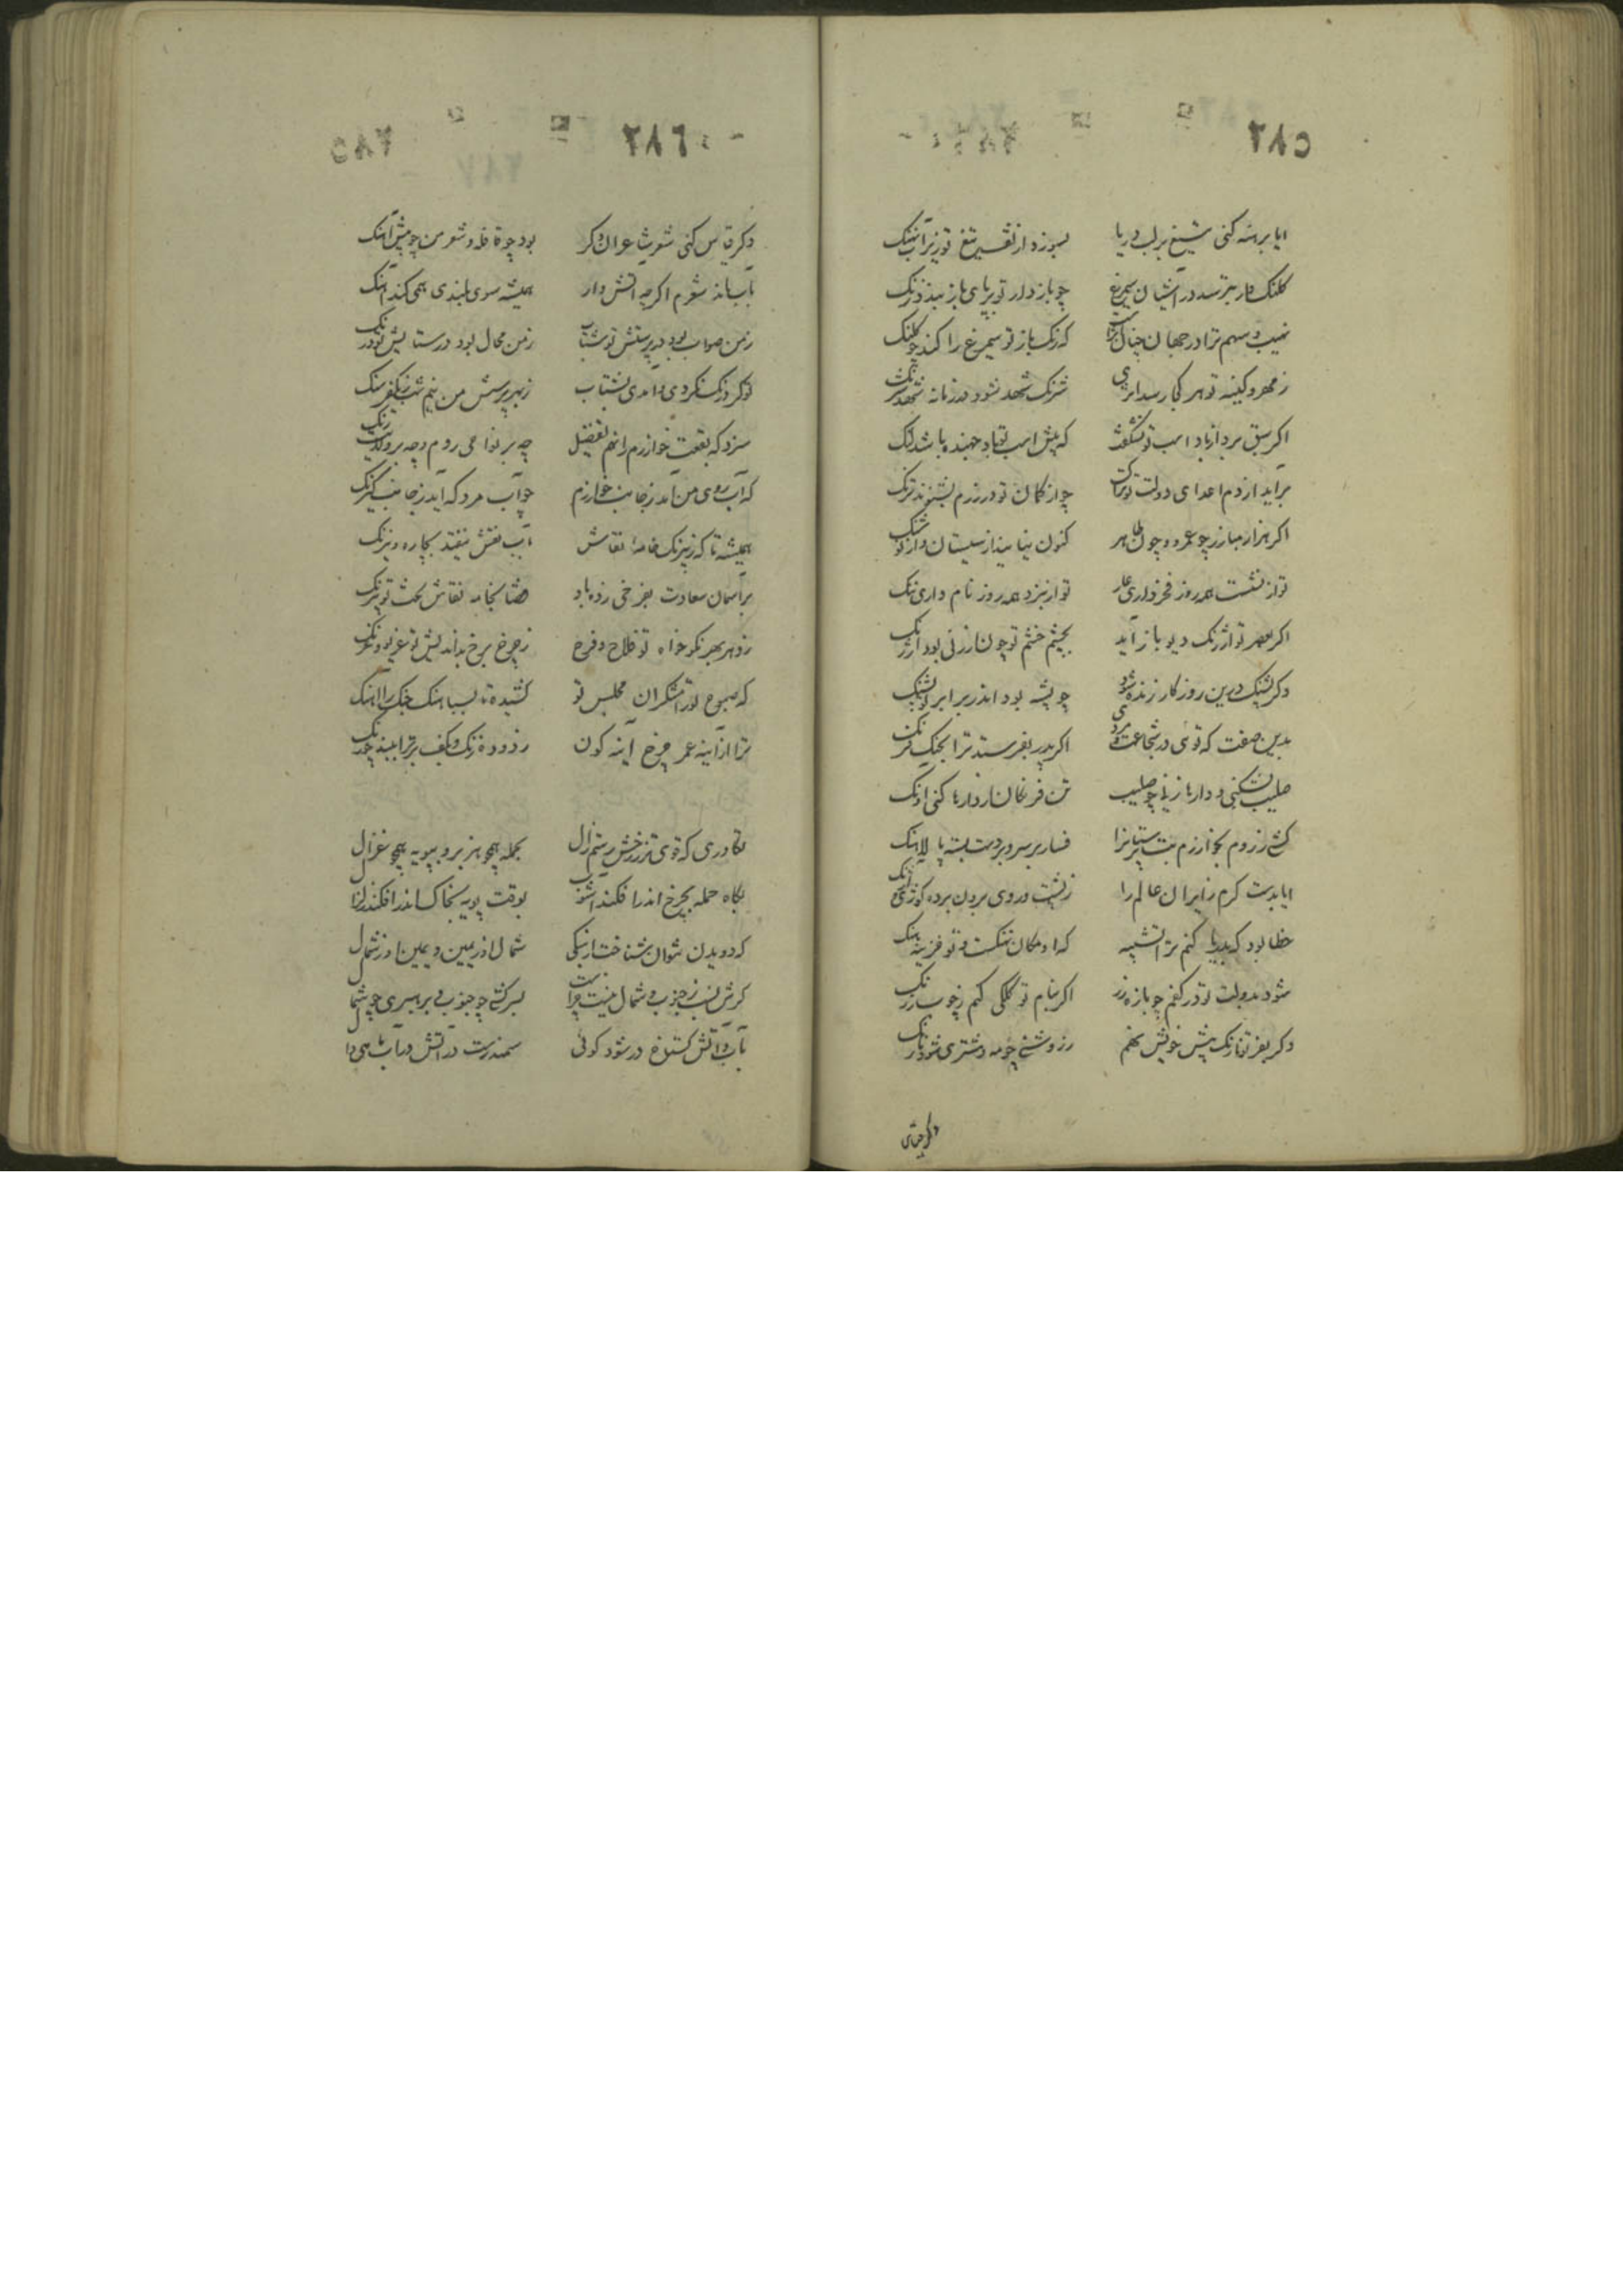 ۲۸۵
ایا برهنه کنی تیغ بر لب دریا بسوزد از تف تیغ تو زیر آب نهنگ
کلنک وار بترسد در آشیان سیمرغ چو باز دار تو بر پای باز بندد زنک
نهیب و سهم ترا در جهان چنان که زنک باز تو سیمرغ را کند چو کلنک
ز مهر و کینه تو هر کجا رسد اثری شرنک شهد شود در زمانه شهد شرنک
اکر سبق برد از باد اسب تو نشکفت که پیش اسب تو باد جهنده باشد لنک
برآید از دم اعدای دولت تو ترنک چو از کمان تو در رزم بشنوند ترنک
اکر هزار مبارز چو عمرو و چون طاهر کنون بیاید از سیستان و از
تو از نشست همه روز فخر داری عار تو از نبرد همه روز نام داری ننک
اکر بعصر تو ارژنک دیو باز آید بچشم خشم تو چون ارزنی بود ارژنک
دکر پشنک درین روزکار زنده شود چو پشه بود اندر برابر تو پشنک
بدین صفت که توئی در شجاعت و مردی اکر پدر بفرستد ترا بجنک فرنک
صلیب بشکنی و دارها زنی چو صلیب تن فرنکان از دارها کنی آونک
کشی ز روم بخوارزم بت پرستانرا فسار بر سر و بر دست بسته پالاهنک
ایا بدست کرم زایران عالم را ز پشت و روی برون برده کوژی و آژنک
خطا بود که بدریا کنم ترا تشبیه که او مکان نهنکست و تو خزینه هنک
شود بدولت تو در کفم چو بازه زر اکر بنام تو کلکی کنم ز چوب زرنک
دکر بفر تو نارنک پیش خویش نهم ز روشنی چو مه و مشتری شود نارنک
دکر قیاس
۲۸۶
دکر قیاس کنی شعر شاعران دکر بود چو قافله و شعر من چو پیش آهنک
بآب ماند شعرم اکرچه آتش وار همیشه سوی بلندی همی کند آهنک
ز من صواب بود در پرستش تو شتاب ز من محال بود در ستایش تو درنک
تو کر درنک نکردی و آمدی بشتاب
سزد که بقعت خوارزم را نهم تفضیل چه بر نواحی روم و چه بر ولایت زنک
که آب روی من آمد ز جانب خوارزم چو آب مرد که آید ز جانب
همیشه تا که ز نیرنک خامه نقاش بآب نقش نیفتد بچاره و نیرنک
بر آسمان سعادت بفرخی زده باد قضا بخامه نقاش بخت تو نیرنک
ز دهر بهر نکو خواه تو فلاح و فرح ز چرخ برخ بداندیش تو غریو و غرنک
که صبوح تو رامشکران مجلس تو کشیده تا بسباهنک چنک را آهنک
ترا از آینه عمر چرخ آینه کون زدوده زنک و بکف بر ترا نبید چو زنک
تکاوری که قوی تر ز رخش رستم زال بحمله همچو هزبر و بپویه همچو غزال
بکاه حمله بچرخ اندر افکند آشوب بوقت پویه بخاک اندر افکند زلزال
که دویدن نتوان شناخت از نیکی شمال او ز یمین و یمین او ز شمال
کرش نسب ز جنوب و شمال نیست چراست بسرکشی چو جنوب و برهبری چو شمال
بآب و آتش کستاخ در شود کوئی سمندرست در آتش در آب ماهی وال